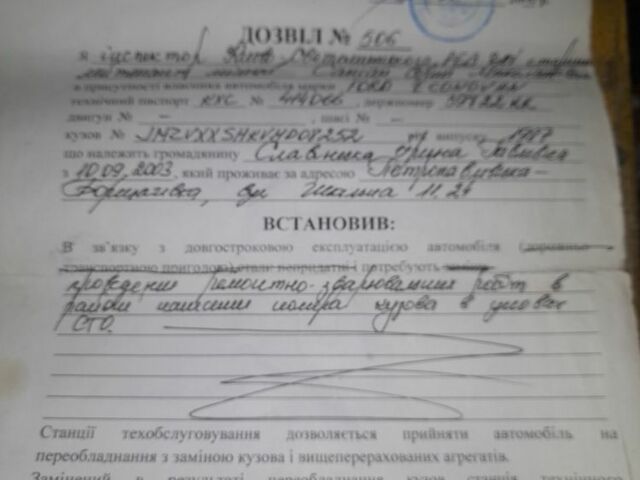 ДОЗВІЛ № 506
Я інспектор
в присутності власника автомобіля марки FORD ECONOVAN
технічний паспорт КХС № 414066, держномер 59822 КК
двигун № — , шасі № —
кузов № JMZVXXSHKVHD08252 рік випуску 1987
що належить громадянину Славінська Ірина
з 10.09.2003, який проживає за адресою Петропавлівська-
Борщагівка, вул Шкільна 11, 24
ВСТАНОВИВ:
В зв'язку з довгостроковою експлуатацією автомобіля (дорожньо-
транспортною пригодою) стали непридатні і потребують заміни
проведення ремонтно-зварювальних робіт в
районі нанесення номера кузова в умовах
СТО.
Станції техобслуговування дозволяється прийняти автомобіль на
переобладнання з заміною кузова і вищеперерахованих агрегатів.
Замінений в результаті переобладнання кузов станція технічного